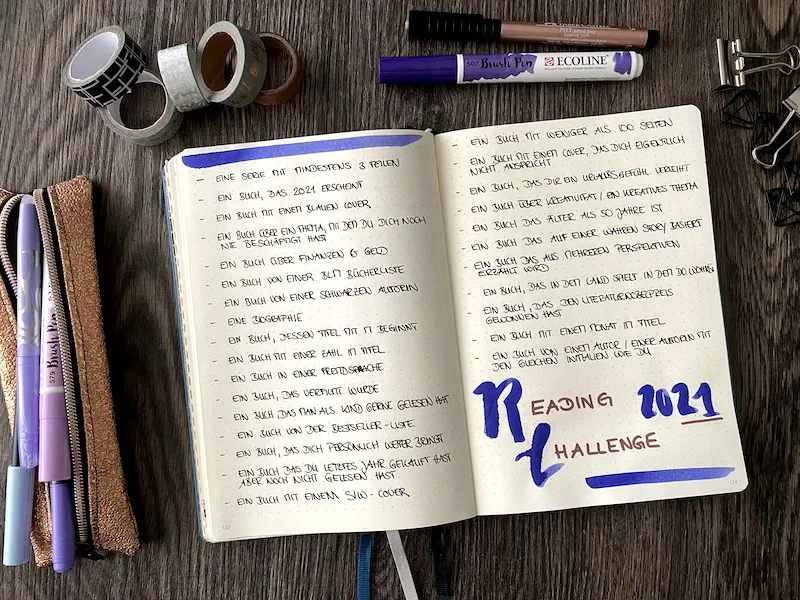 507 Brush Pen ECOLINE
- EINE SERIE MIT MINDESTENS 3 TEILEN
- EIN BUCH, DAS 2021 ERSCHEINT
- EIN BUCH MIT EINEM BLAUEN COVER
- EIN BUCH ÜBER EIN THEMA, MIT DEM DU DICH NOCH
NIE BESCHÄFTIGT HAST
- EIN BUCH ÜBER FINANZEN & GELD
- EIN BUCH VON EINER BLM BÜCHERLISTE
- EIN BUCH VON EINER SCHWARZEN AUTORIN
- EINE BIOGRAPHIE
- EIN BUCH, DESSEN TITEL MIT M BEGINNT
- EIN BUCH MIT EINER ZAHL IM TITEL
- EIN BUCH IN EINER FREMDSPRACHE
- EIN BUCH, DAS VERFILMT WURDE
- EIN BUCH DAS MAN ALS KIND GERNE GELESEN HAT
- EIN BUCH VON DER BESTSELLER-LISTE
- EIN BUCH, DAS DICH PERSÖNLICH WEITER BRINGT
- EIN BUCH DAS DU LETZTES JAHR GEKAUFT HAST
ABER NOCH NICHT GELESEN HAST
- EIN BUCH MIT EINEM S/W-COVER
- EIN BUCH MIT WENIGER ALS 100 SEITEN
- EIN BUCH MIT EINEM COVER, DAS DICH EIGENTLICH
NICHT ANSPRICHT
- EIN BUCH, DAS DIR EIN URLAUBSGEFÜHL VERLEIHT
- EIN BUCH ÜBER KREATIVITÄT / EIN KREATIVES THEMA
- EIN BUCH DAS ÄLTER ALS 50 JAHRE IST
- EIN BUCH DAS AUF EINER WAHREN STORY BASIERT
- EIN BUCH DAS AUS MEHREREN PERSPEKTIVEN
ERZÄHLT WIRD
- EIN BUCH, DAS IN DEM LAND SPIELT IN DEM DU WOHNST
- EIN BUCH, DAS DEN LITERATURNOBELPREIS
GEWONNEN HAST
- EIN BUCH MIT EINEM MONAT IM TITEL
- EIN BUCH VON EINEM AUTOR / EINER AUTORIN MIT
DEN GLEICHEN INITIALEN WIE DU
READING 2021
CHALLENGE
579 Brush Pen